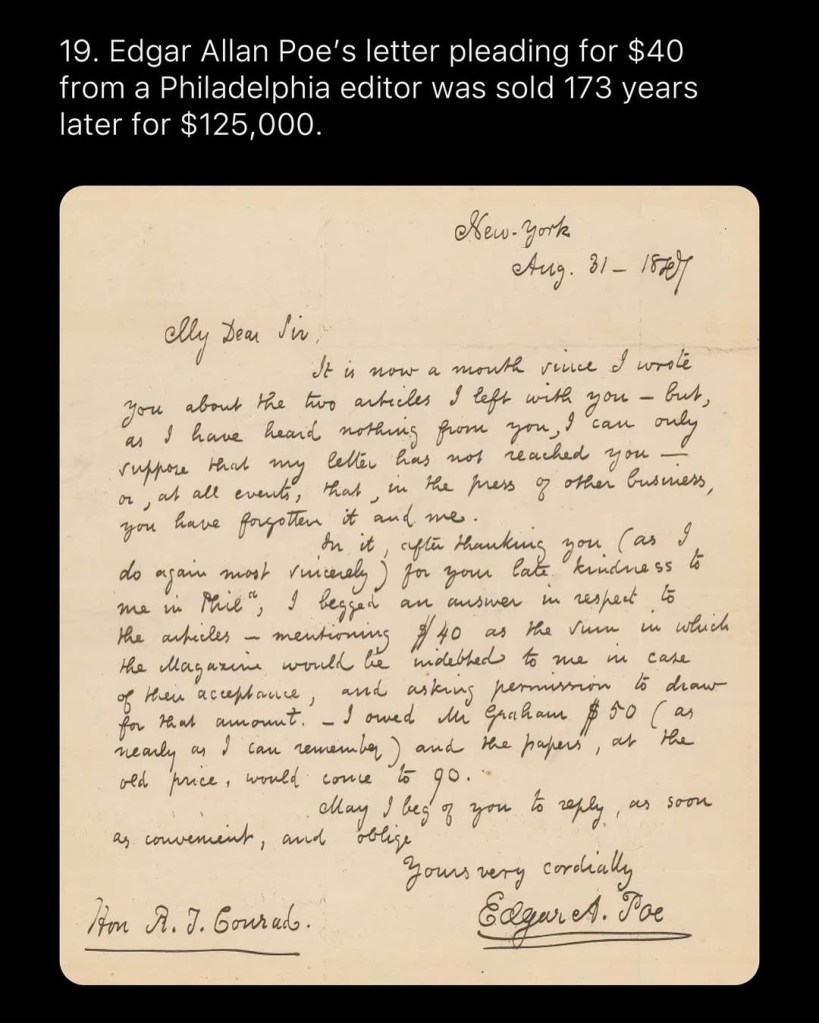 19. Edgar Allan Poe’s letter pleading for $40
from a Philadelphia editor was sold 173 years
later for $125,000.
New-York
Aug. 31 – 1847
My Dear Sir,
It is now a month since I wrote
you about the two articles I left with you — but,
as I have heard nothing from you, I can only
suppose that my letter has not reached you —
or, at all events, that, in the press of other business,
you have forgotten it and me.
In it, after thanking you (as I
do again most sincerely) for your late kindness to
me in Philª, I begged an answer in respect to
the articles — mentioning $40 as the sum in which
the Magazine would be indebted to me in case
of their acceptance, and asking permission to draw
for that amount. — I owed Mr Graham $50 (as
nearly as I can remember) and the papers, at the
old price, would come to 90.
May I beg of you to reply, as soon
as convenient, and oblige
Yours very cordially
Edgar A. Poe
Hon R. T. Conrad.